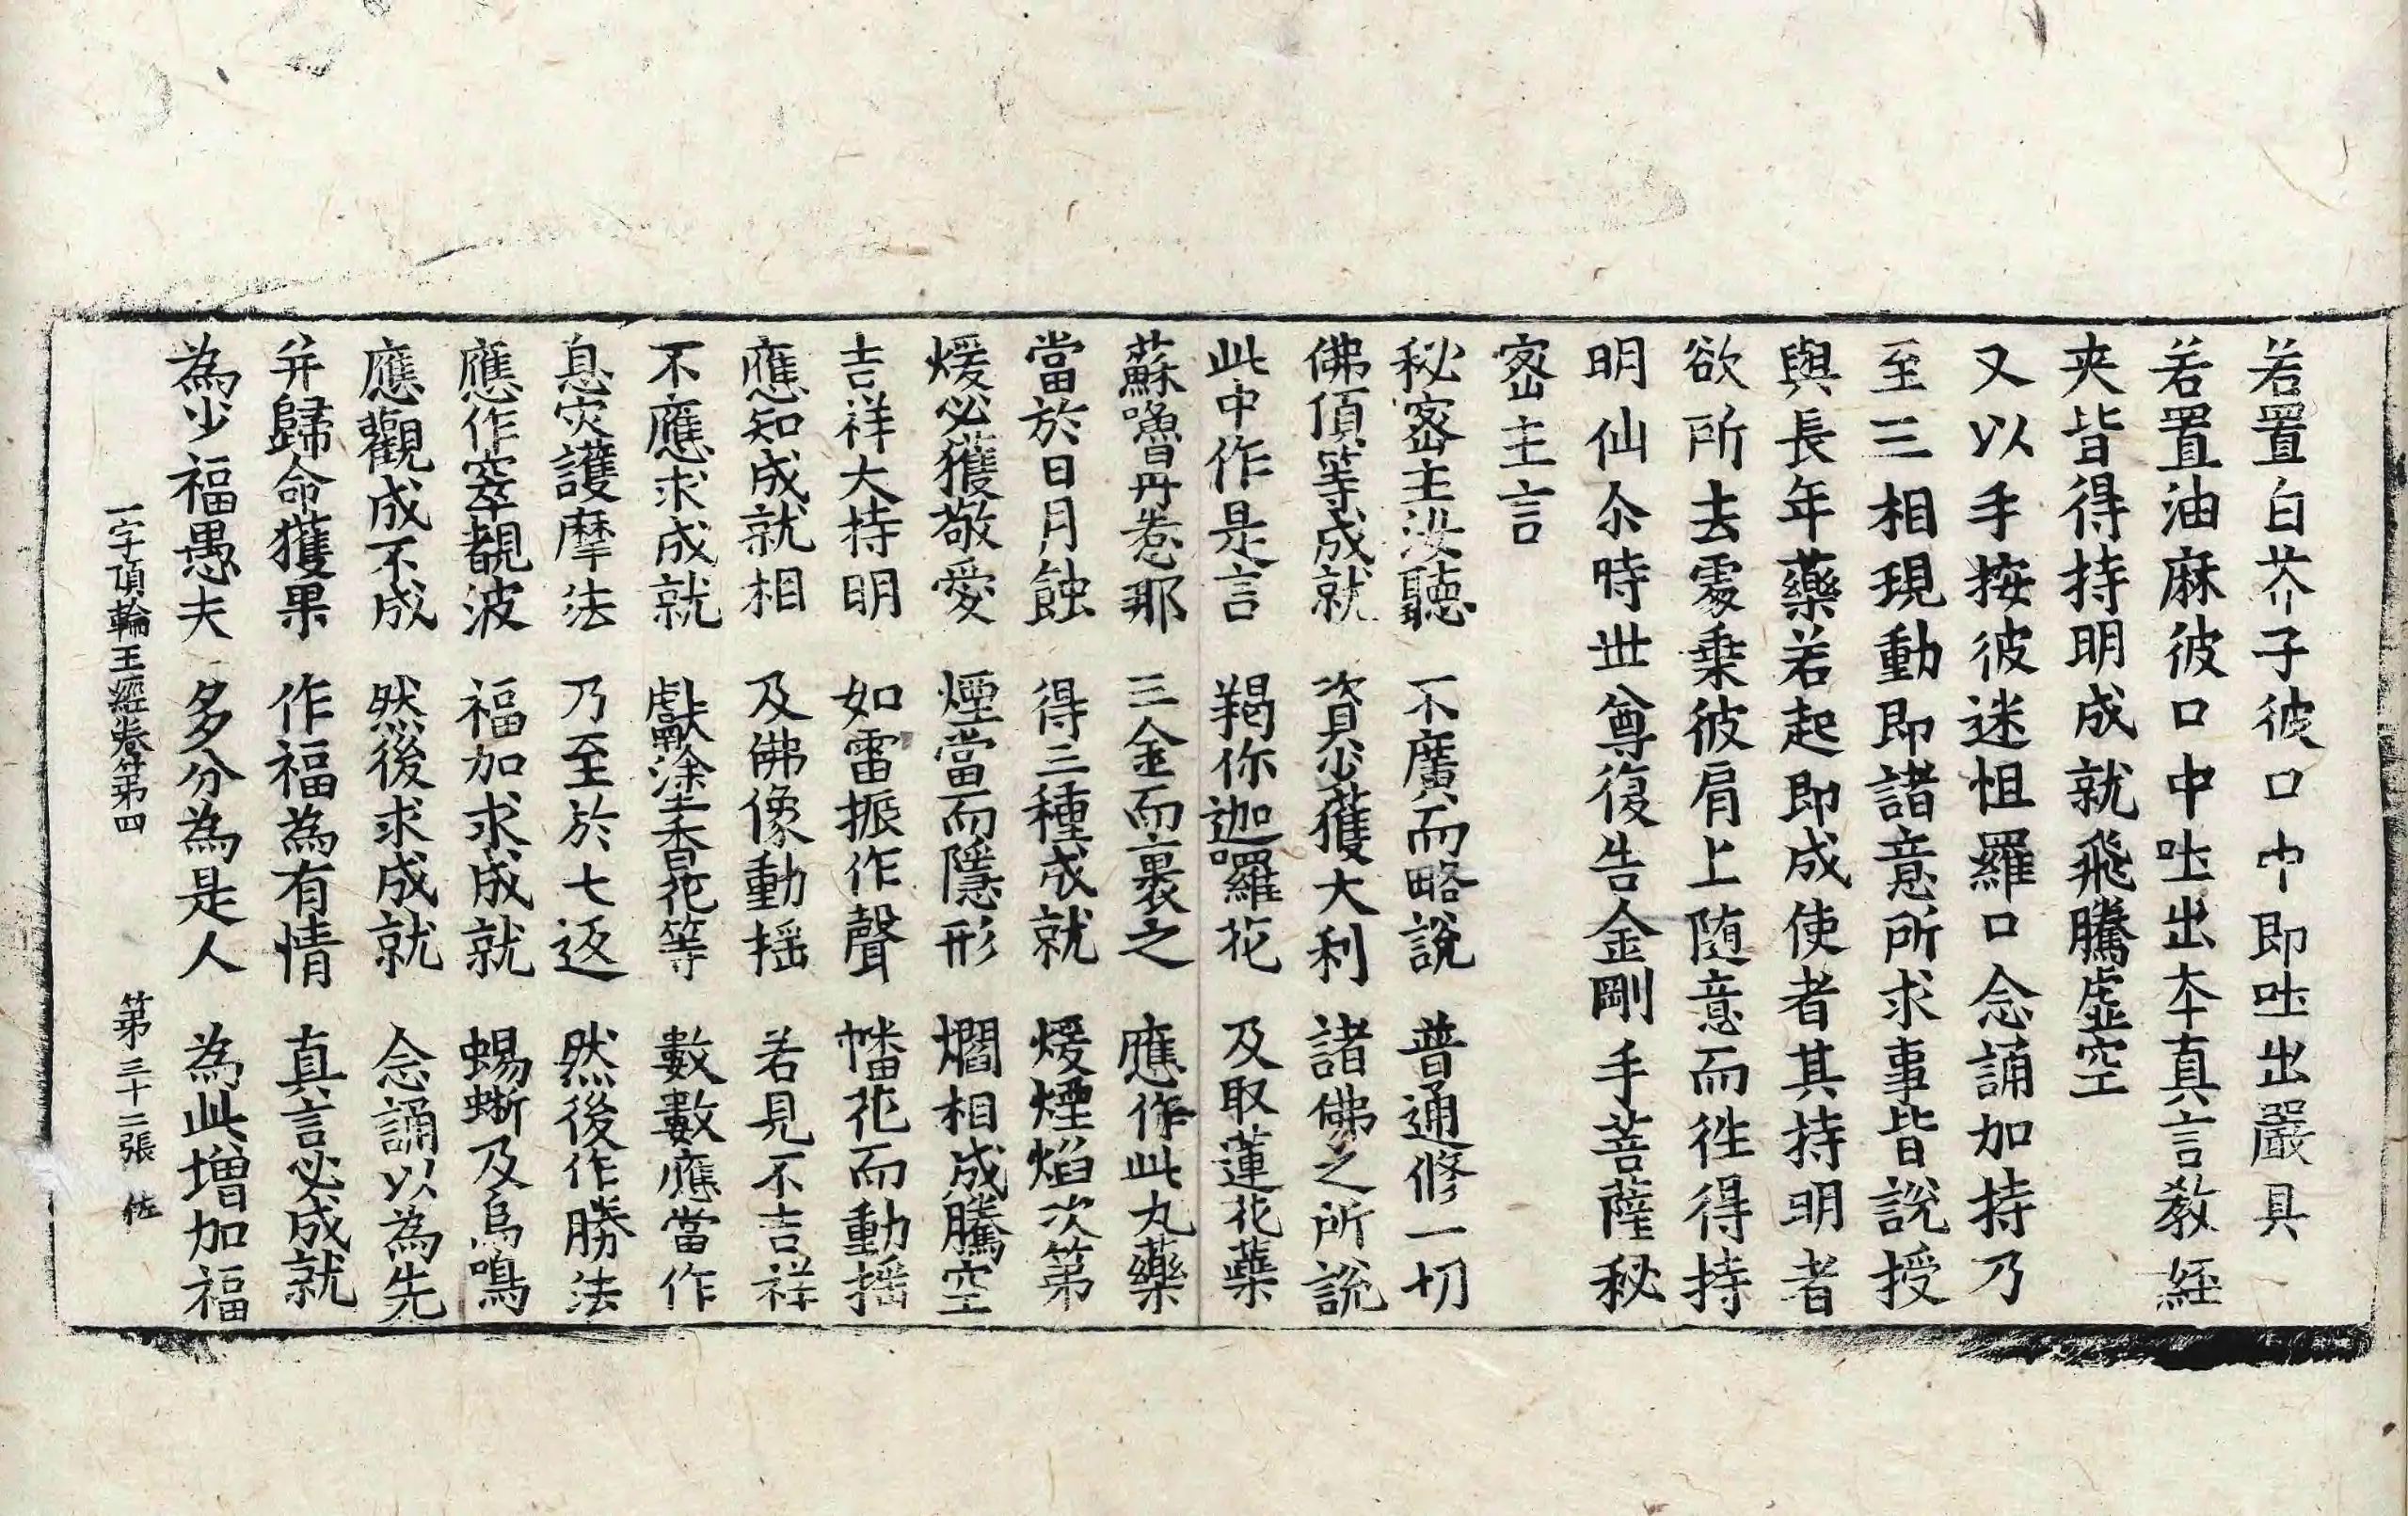 若置白芥子彼口中即吐出嚴具
若置油麻彼口中吐出本真言教經
夾皆得持明成就飛騰虛空
又以手按彼迷怛羅口念誦加持乃
至三相現動即諸意所求事皆說授
與長年藥若起即成使者其持明者
欲所去處乗彼肩上随意而徃得持
明仙尒時世尊復告金剛手菩薩秘
宻主言
秘宻主汝聽 不廣而略說 普通修一切
佛頂等成就 資少獲大利 諸佛之所說
此中作是言 羯你迦囉花 及取蓮花蘂
蘇嚕㫋惹那 三金而裹之 應作此丸藥
當於日月蝕 得三種成就 煖煙焰次第
煖必獲敬愛 煙當而隱形 爓相成騰空
吉祥大持明 如雷振作聲 幡花而動揺
應知成就相 及佛像動揺 若見不吉祥
不應求成就 獻塗香花等 數數應當作
息灾護摩法 乃至於七返 然後作勝法
應作窣覩波 福加求成就 蜴蜥及烏鳴
應觀成不成 然後求成就 念誦以為先
并歸命獲果 作福為有情 真言必成就
為少福愚夫 多分為是人 為此增加福
一字頂輪王經卷第四 第三十二張 佐